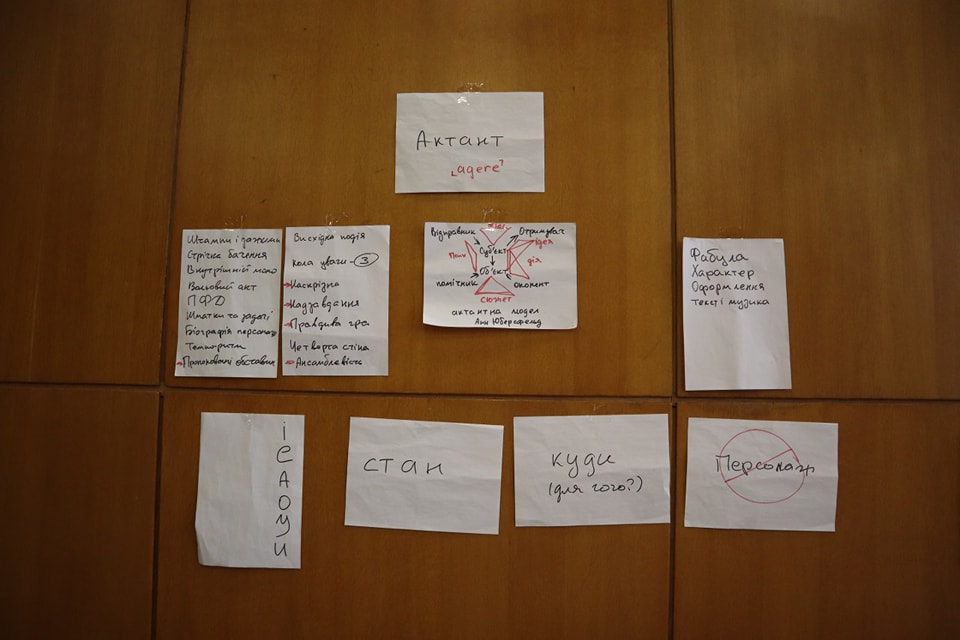 Актант
[agere]
Штампи і
Стрічка бачення
Внутрішній моно
Вольовий акт
ПФД
Шматки та задачі
Біографія персонаж
Темпоритм
Пропоновані обставин
Вихідна подія
Кола уваги - 3
Наскрізна
Надзавдання
Правдива гра
Четверта стіна
Ансамблевість
Відправник Отримувач
Суб'єкт ідея
дія
Об'єкт
помічник опонент
сюжет
актантна модел
Анн Юберсфельд
Фабула
Характер
Оформлення
текст і музика
і
е
а
о
у
и
стан
куди
(для чого?)
Персонаж